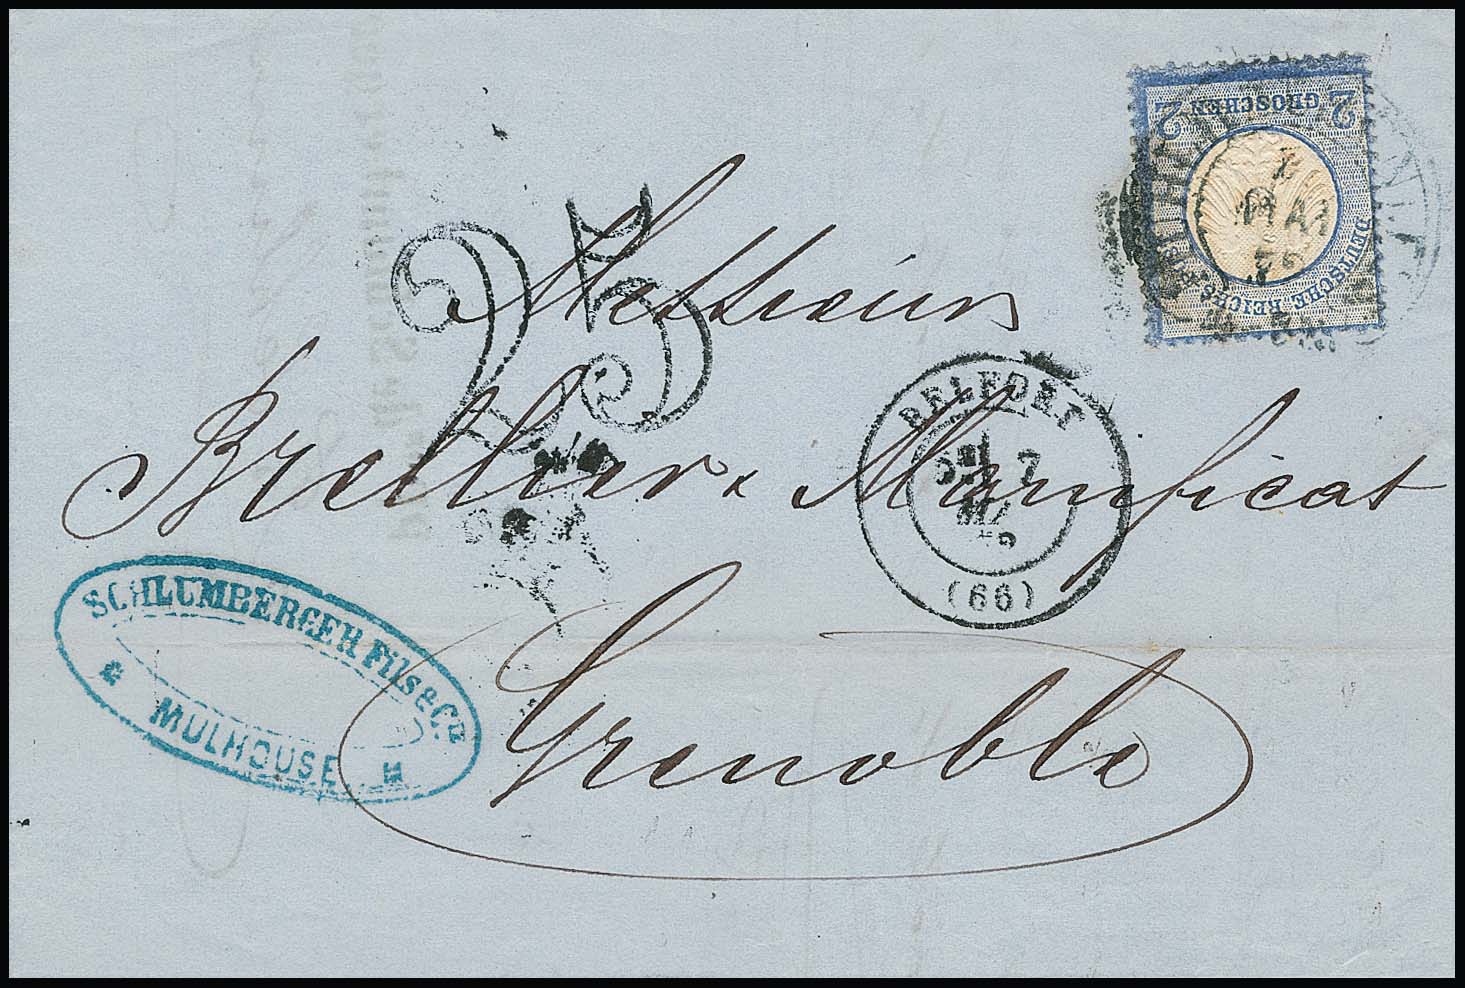 2 GROSCHEN 2
DEUTSCHE REICHS
MAI
25
Messieurs
Brellier & Magnificat
Grenoble
BELFORT
7
(66)
SCHLUMBERGER Fils & Cie
MULHOUSE